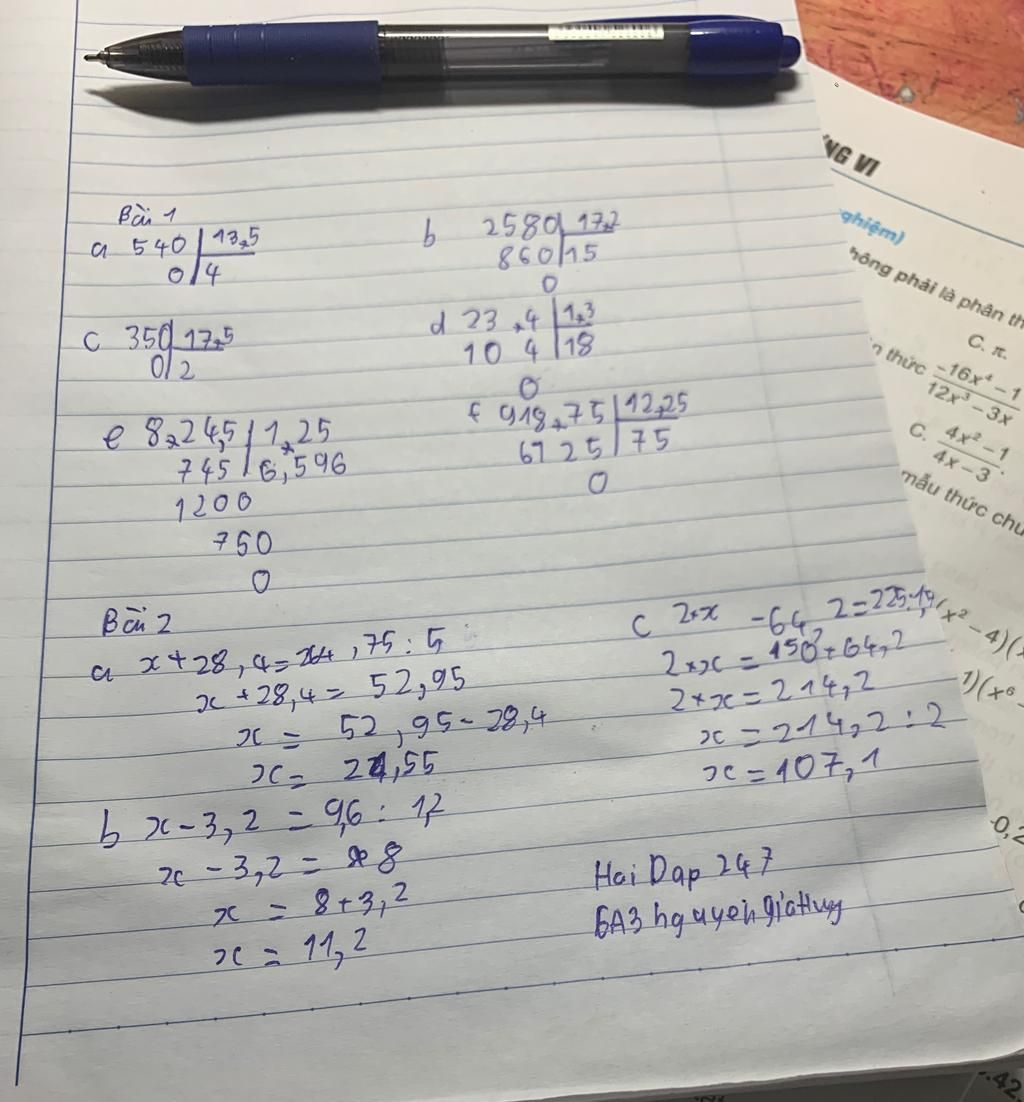 Bài 1
a 540 | 13,5
0 | 4
b 2580 | 17,2
860 | 15
0
c 350 | 17,5
0 | 2
d 23,4 | 1,3
10 4 | 18
0
e 8,24,5 | 1,25
745 | 6,596
1200
750
0
f 918,75 | 12,25
61 25 | 75
0
Bài 2
a x + 28,4 = 264,75 : 5
x + 28,4 = 52,95
x = 52,95 - 28,4
x = 24,55
b x - 3,2 = 9,6 : 1,2
x - 3,2 = 8
x = 8 + 3,2
x = 11,2
c 2 × x - 64,2 = 225 :
2 × x = 150 + 64,2
2 × x = 214,2
x = 214,2 : 2
x = 107,1
Hoi Dap 247
6A3 nguyen gia Huy
NG VI
ghiệm)
hông phải là phân th
C. π.
n thức -16x⁴ - 1 / 12x³ - 3x
C. 4x² - 1 / 4x - 3.
mẫu thức chu
(x² - 4)(
1)(x⁶
-0,2
.42.